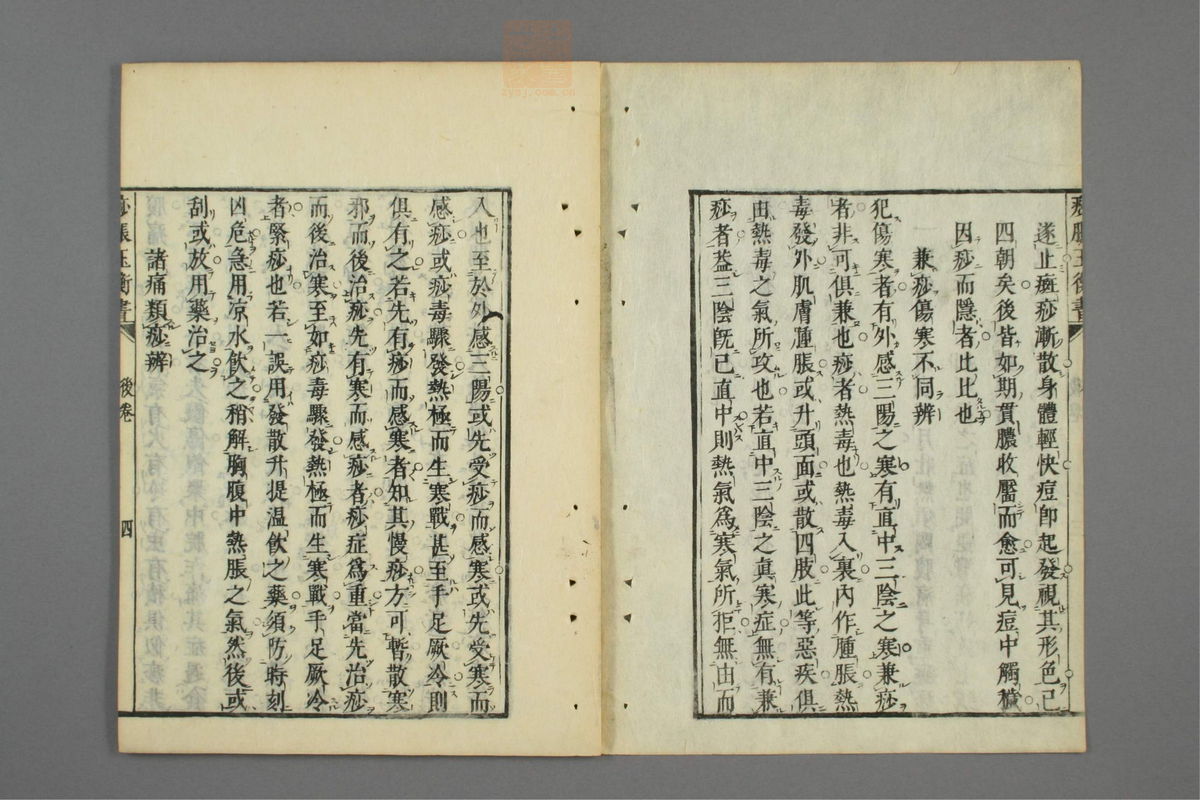 遂止斑痧漸散身體輕快痘即起發視其形色已
四朝矣後皆如期貫膿收靨而愈可見痘中觸穢
因痧而隱者比比也
兼痧傷寒不同辨
犯傷寒者有外感三陽之寒有直中三陰之寒兼痧
者非可俱兼也痧者熱毒也熱毒入裏內作腫脹熱
毒發外肌膚腫脹或升頭面或散四肢此等惡疾俱
由熱毒之氣所攻也若直中三陰之真寒症無有兼
痧者葢三陰既已直中則熱氣爲寒氣所拒無由而
入也至於外感三陽或先受痧而感寒或先受寒而
感痧或痧毒驟發熱極而生寒戰甚至手足厥冷則
俱有之若先有痧而感寒者知其慢痧方可暫散寒
邪而後治痧先有寒而感痧者痧症爲重當先治痧
而後治寒至如痧毒驟發熱極而生寒戰手足厥冷
者緊痧也若一誤用發散升提溫飲之藥須防時刻
凶危急用凉水飲之稍解胸腹中熱脹之氣然後或
刮或放用藥治之
諸痛類痧辨
痧脹玉衡書
後卷
四
zysj.com.cn